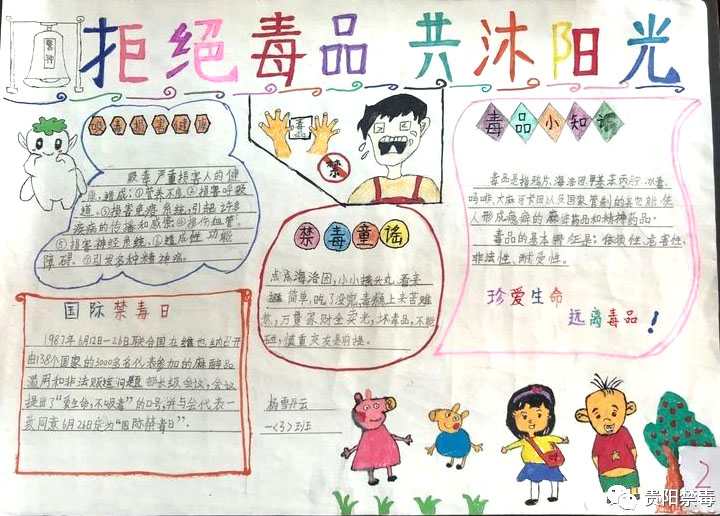 警钟
拒绝毒品 共沐阳光
吸毒损害健康
吸毒严重损害人的健
康,造成:①营养不良②损害呼吸
道。③损害免疫系统,引起许多
疾病的传播和感染④损伤血管。
⑤损害神经系统。⑥造成性功能
障碍。⑦引发各种精神病。
国际禁毒日
1987年6月12日-26日联合国在维也纳召开
由138个国家的3000名名代表参加的麻醉品
滥用和非法贩运问题部长级会议,会议
提出了“爱生命,不吸毒”的口号,并与会代表一
致同意6月26日定为“国际禁毒日”.
毒品
禁
禁毒童谣
点点海洛因,小小摇头丸,看来
简单,吃了没完,毒瘾上来苦难
熬,万贯家财全卖光,坏毒品,不能
碰,慎重交友是前提。
杨雪丹云
一<3>班
毒品小知识
毒品是指鸦片、海洛因、甲基苯丙胺、冰毒、
吗啡、大麻可卡因以及国家管制的其它能使
人形成瘾癖的麻醉药品和精神药品。
毒品的基本特征是:依赖性、危害性、
非法性、耐受性。
珍爱生命
远离毒品!
2
贵阳禁毒